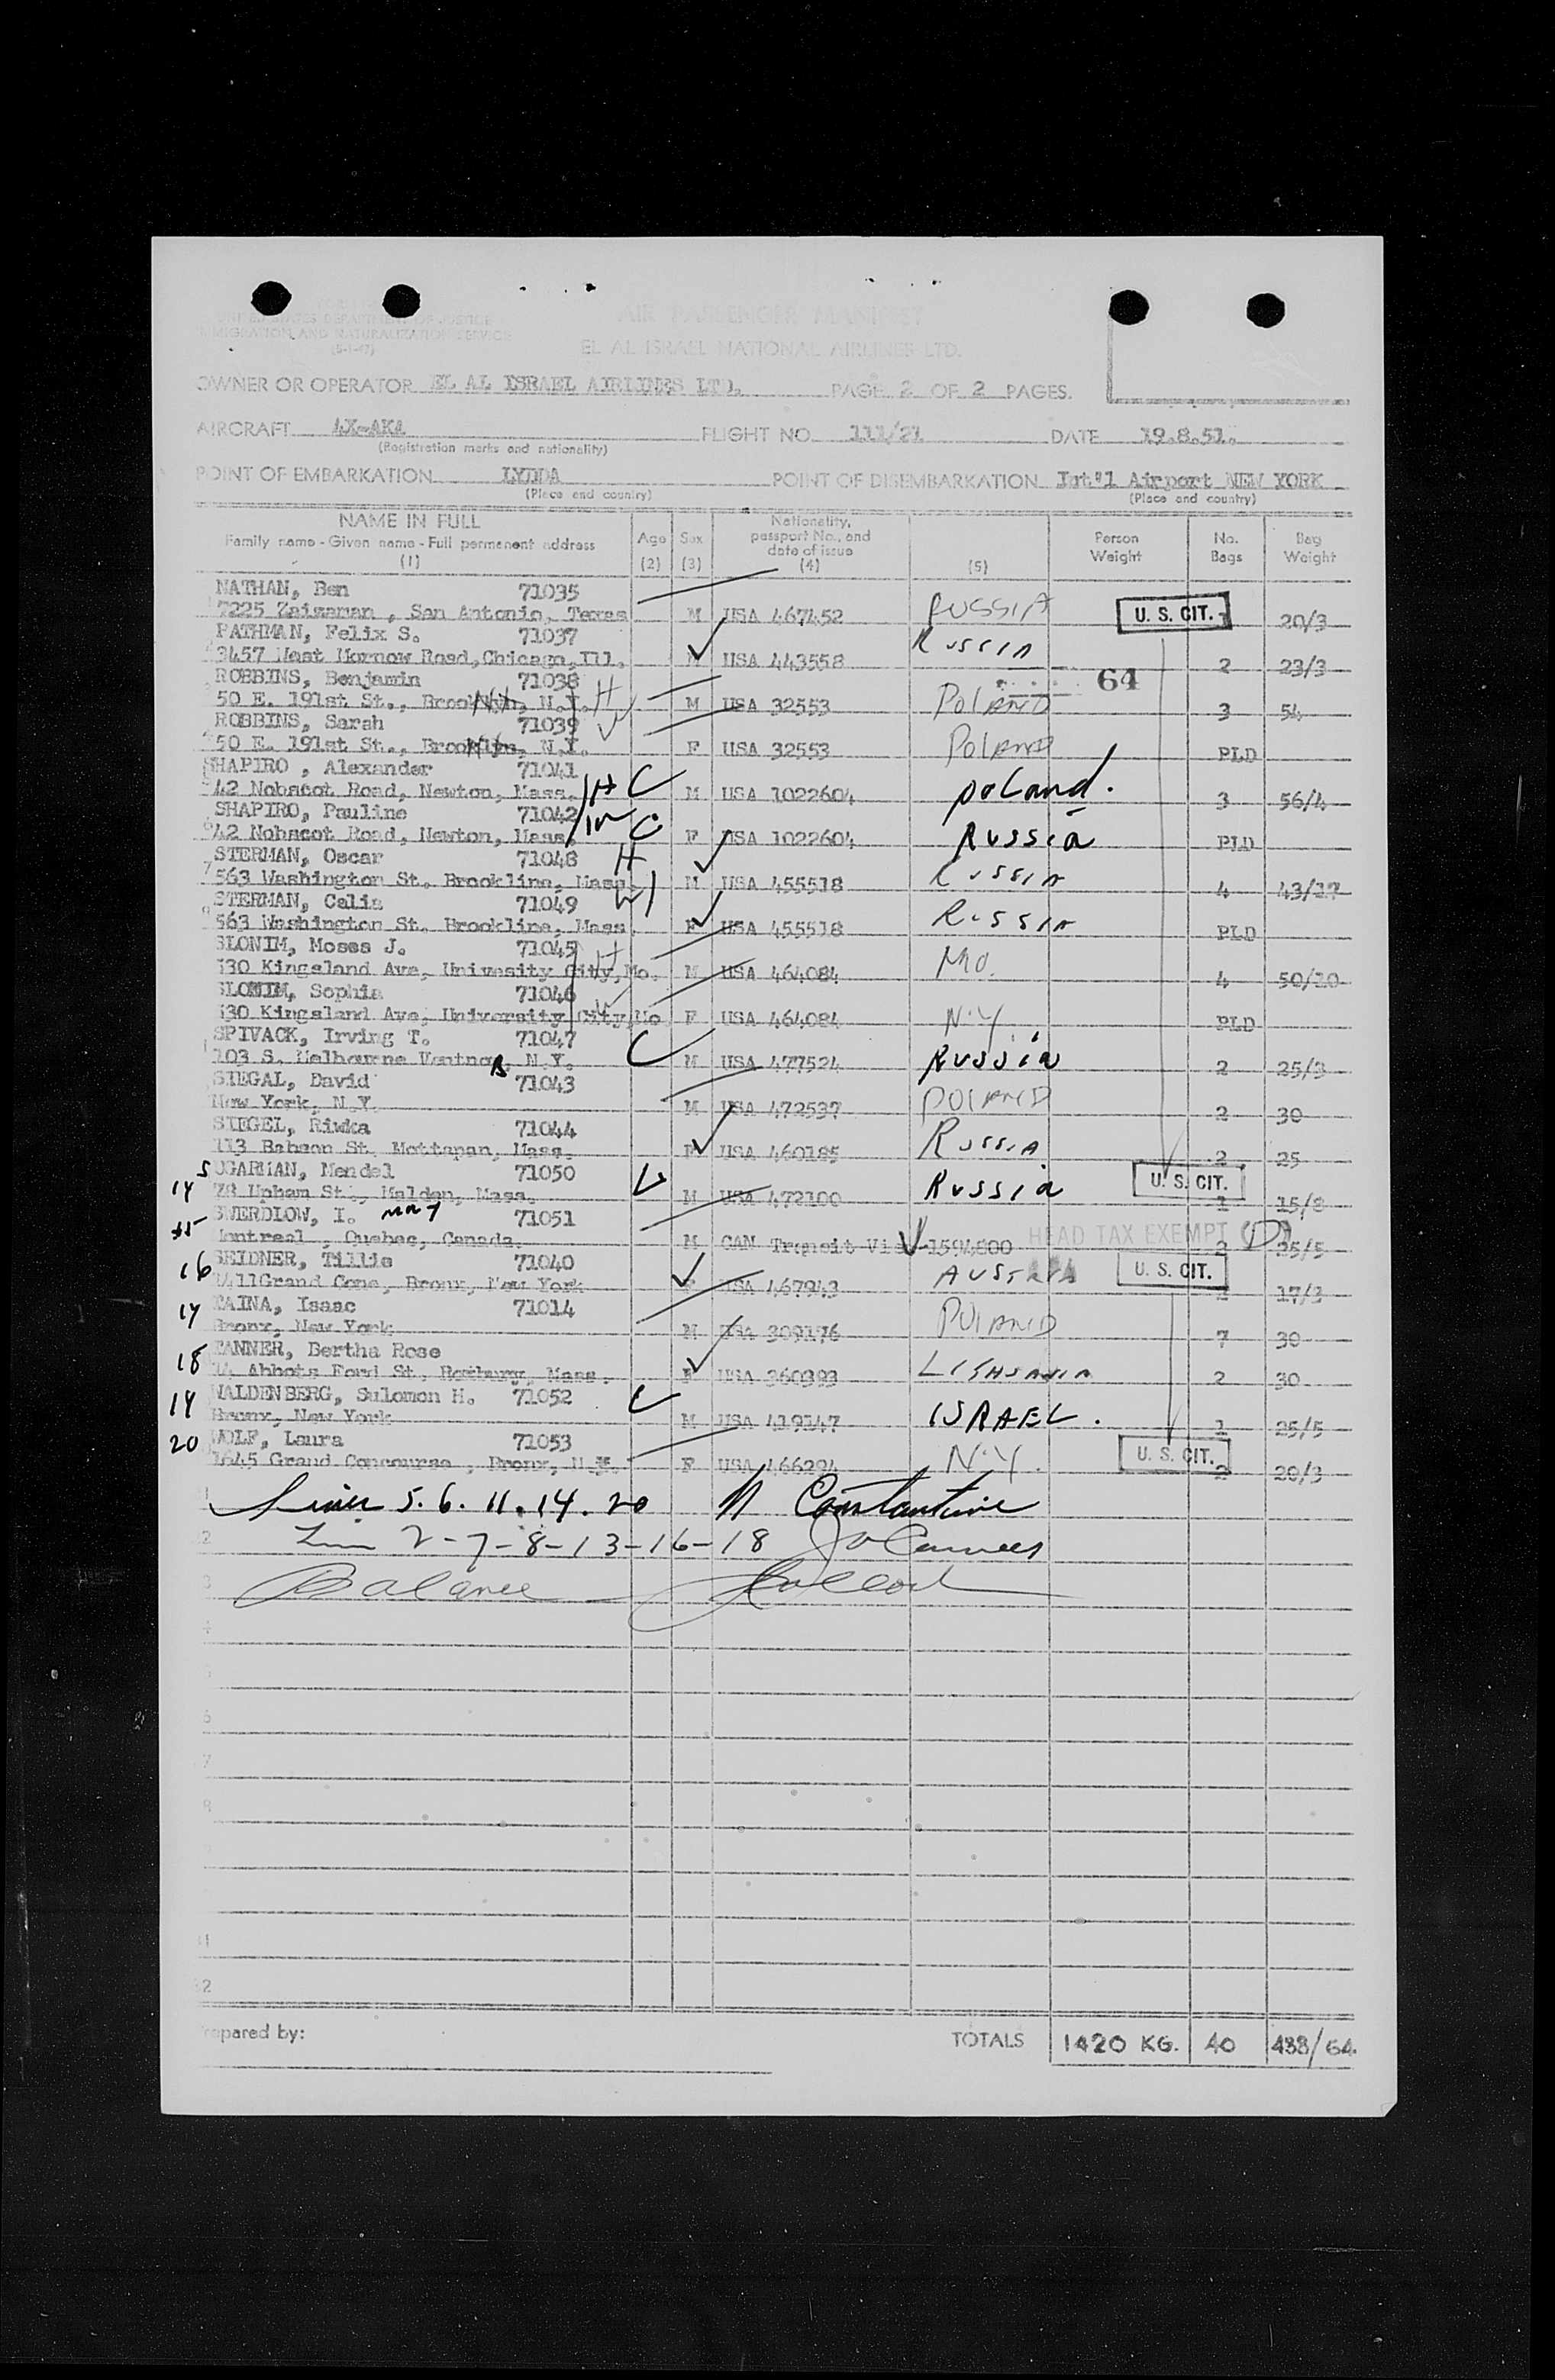 UNITED STATES DEPARTMENT OF JUSTICE
IMMIGRATION AND NATURALIZATION SERVICE
AIR PASSENGER MANIFEST
EL AL ISRAEL NATIONAL AIRLINES LTD.
OWNER OR OPERATOR EL AL ISRAEL AIRLINES LTD. PAGE 2 OF 2 PAGES.
AIRCRAFT 4X-AKA FLIGHT NO. 111/21 DATE 19.8.51.
(Registration marks and nationality)
POINT OF EMBARKATION LYDDA POINT OF DISEMBARKATION Int'l Airport NEW YORK
(Place and country) (Place and country)
NAME IN FULL Age Sex Nationality, passport No., and date of issue Person Weight No. Bags Bag Weight
Family name - Given name - Full permanent address
(1) (2) (3) (4) (5)
NATHAN, Ben 71035
7225 , San Antonio, Texas M USA 467452 RUSSIA U. S. CIT. 20/3
PATHMAN, Felix S. 71037
3457 West Road, Chicago, Ill. USA 443558 Russia 2 23/3
ROBBINS, Benjamin 71038 64
50 E. 191st St., N.Y. H M USA 32553 POLAND 3 54
ROBBINS, Sarah 71039
50 E. 191st St., N.Y. F USA 32553 POLAND PLD
SHAPIRO , Alexander 71041
42 Nobscot Road, Newton, Mass. H C M USA 1022604 poland. 3 56/4
SHAPIRO, Pauline 71042
42 Nobscot Road, Newton, Mass. W C F USA 1022604 Russia PLD
STERMAN, Oscar 71048 H
563 Washington St. Brookline, Mass. M USA 455518 Russia 4 43/17
STERMAN, Celia 71049 W
563 Washington St. Brookline, Mass. F USA 455518 Russia PLD
SLONIM, Moses J. 71045 H
530 Kingsland Ave, Univesity City, Mo. M USA 464084 MO. 4 50/10
SLONIM, Sophia 71046
530 Kingsland Ave, University City, Mo F USA 464084 N.Y PLD
SPIVACK, Irving T. 71047
103 S. Melbourne N.Y. C M USA 477524 Russia 2 25/3
SIEGAL, David 71043
New York, N.Y. M USA 472537 POLAND 2 30
SIEGEL, Riwka 71044
113 Babson St. Mattapan, Mass. F USA 460185 Russia 2 25
SUGARMAN, Mendel 71050
14 78 Upham St., Malden, Mass. M USA 472100 Russia U. S. CIT. 1 15/8
SWERDLOW, I. 71051
Montreal , Quebec, Canada. M CAN Transit 1594800 HEAD TAX EXEMPT 25/5
SEIDNER, Tillie 71040
16 Grand Conc, Bronx, New York USA 467943 U. S. CIT. 17/3
TAINA, Isaac 71014
17 Bronx, New York M USA 309176 POLAND 7 30
TANNER, Bertha Rose
18 Abbots Ford St. Roxbury, Mass. F USA 360393 2 30
WALDENBERG, Sulomon H. 71052
19 Bronx, New York C M USA 419147 ISRAEL. 1 25/5
WOLF, Laura 71053
20 1645 Grand Concourse , Bronx, N.Y. F USA 466294 N.Y. U. S. CIT. 2 20/3
Lines 5. 6. 11. 14. 20 Constantine
2-7-8-13-16-18
Balance
Prepared by: TOTALS 1420 KG. 40 438/64